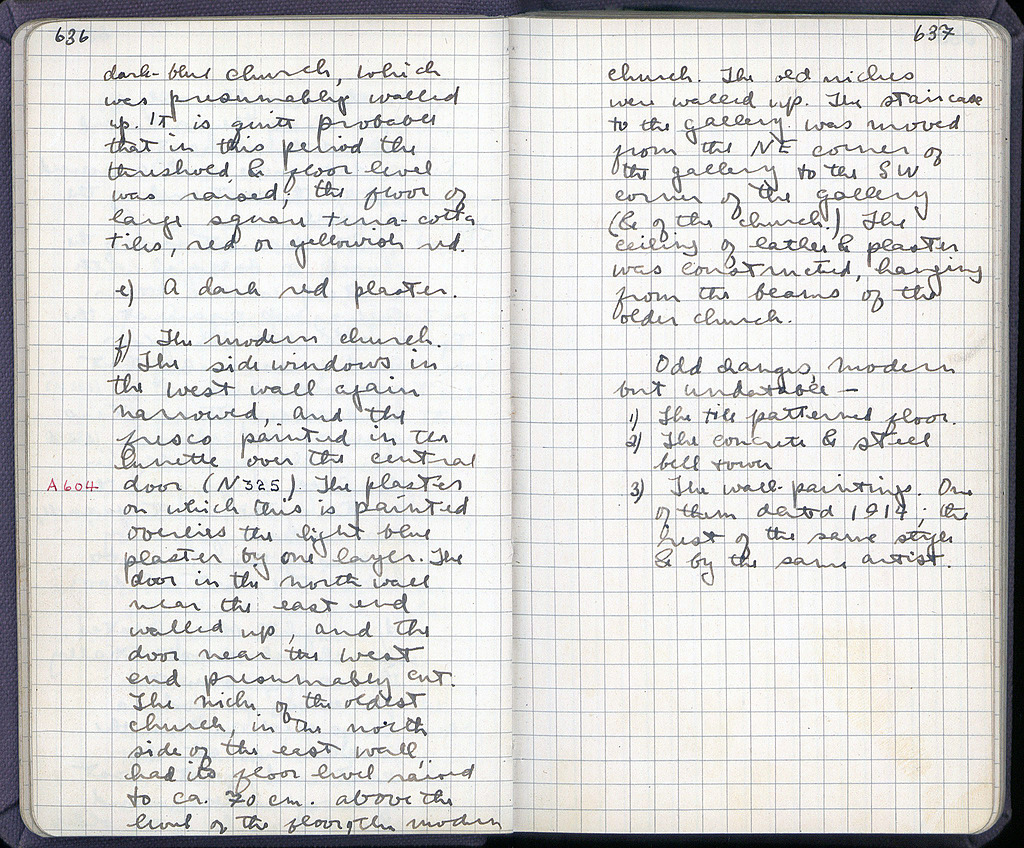 636
dark-blue church, which
was presumably walled
up. It is quite probable
that in this period the
threshold & floor level
was raised; the floor of
large square terra-cotta
tiles, red or yellowish red.
e) A dark red plaster.
f) The modern church.
The side windows in
the west wall again
narrowed, and the
fresco painted in the
lunette over the central
A604 door (N325). The plaster
on which this is painted
overlies the light blue
plaster by one layer. The
door in the north wall
near the east end
walled up, and the
door near the west
end presumably cut.
The niche of the oldest
church, in the north
side of the east wall,
had its floor level raised
to ca. 70 cm. above the
level of the floor of the modern
637
church. The old niches
were walled up. The staircase
to the gallery was moved
from the NE corner of
the gallery to the SW
corner of the gallery
(& of the church.) The
ceiling of lathes & plaster
was constructed, hanging
from the beams of the
older church.
Odd changes, modern
but undatable —
1) The tile patterned floor.
2) The concrete & steel
bell tower
3) The wall-paintings. One
of them dated 1914; the
rest of the same style
& by the same artist.